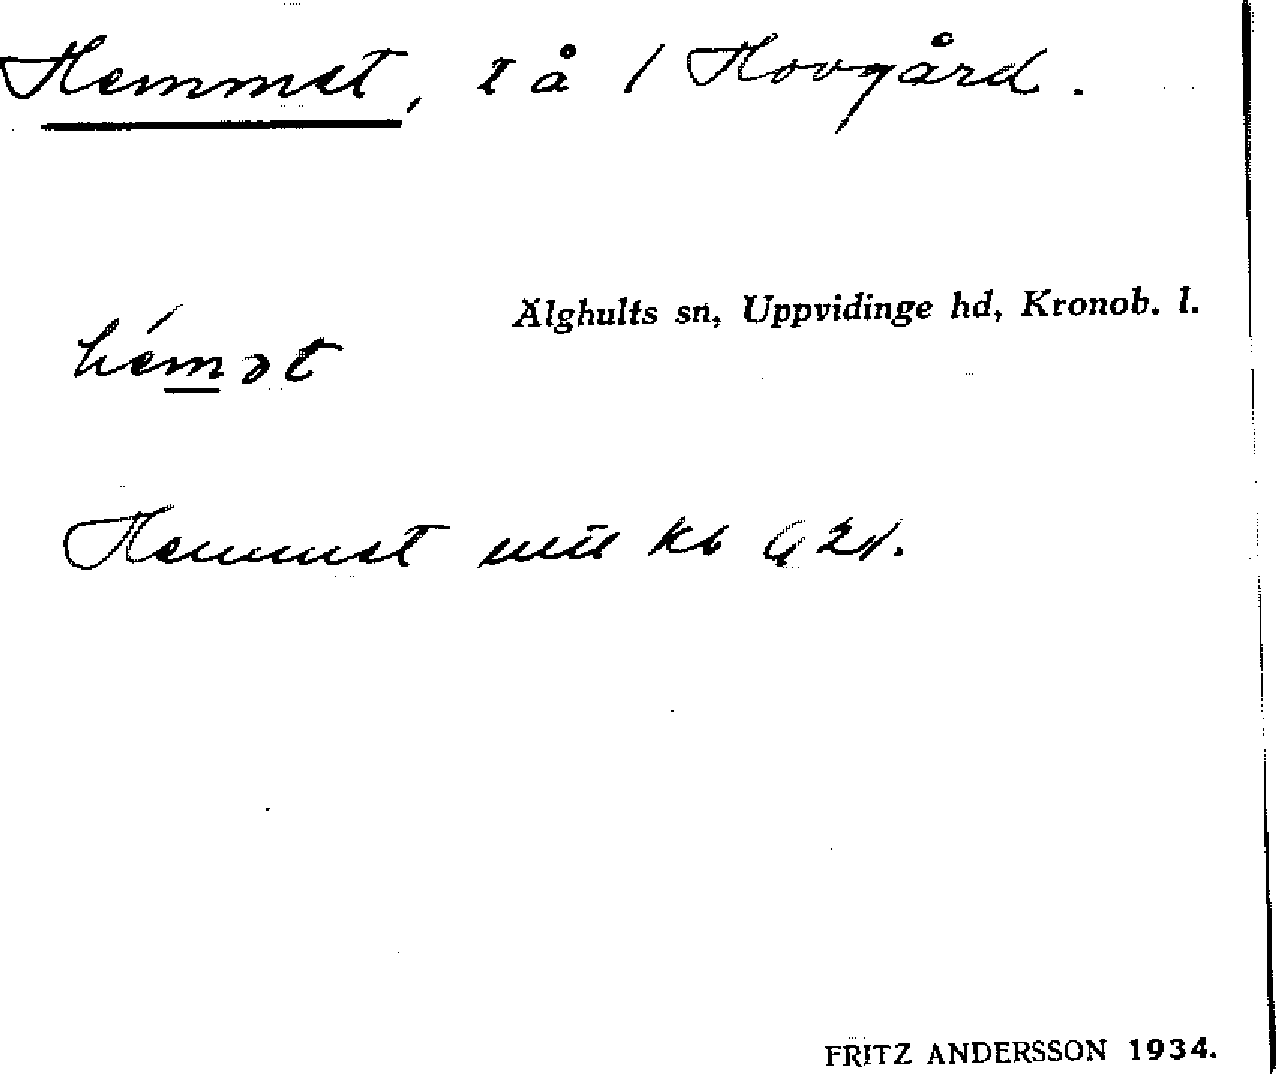 Hemmet, I å / Hovgård.
Älghults sn, Uppvidinge hd, Kronob. l.
hémət
Hemmet
FRITZ ANDERSSON 1934.